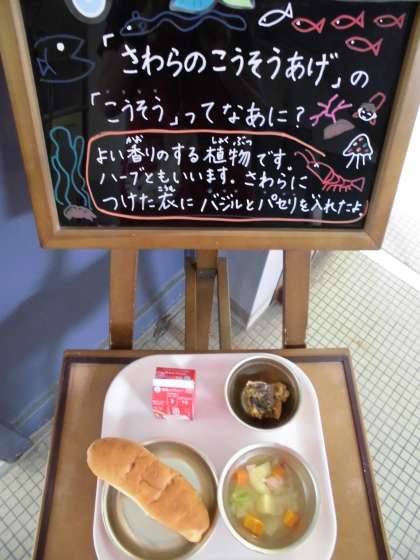 「さわらのこうそうあげ」の
「こうそう」ってなあに？
よい香りのする植物です。
ハーブともいいます。さわらに
つけた衣にバジルとパセリを入れたよ。